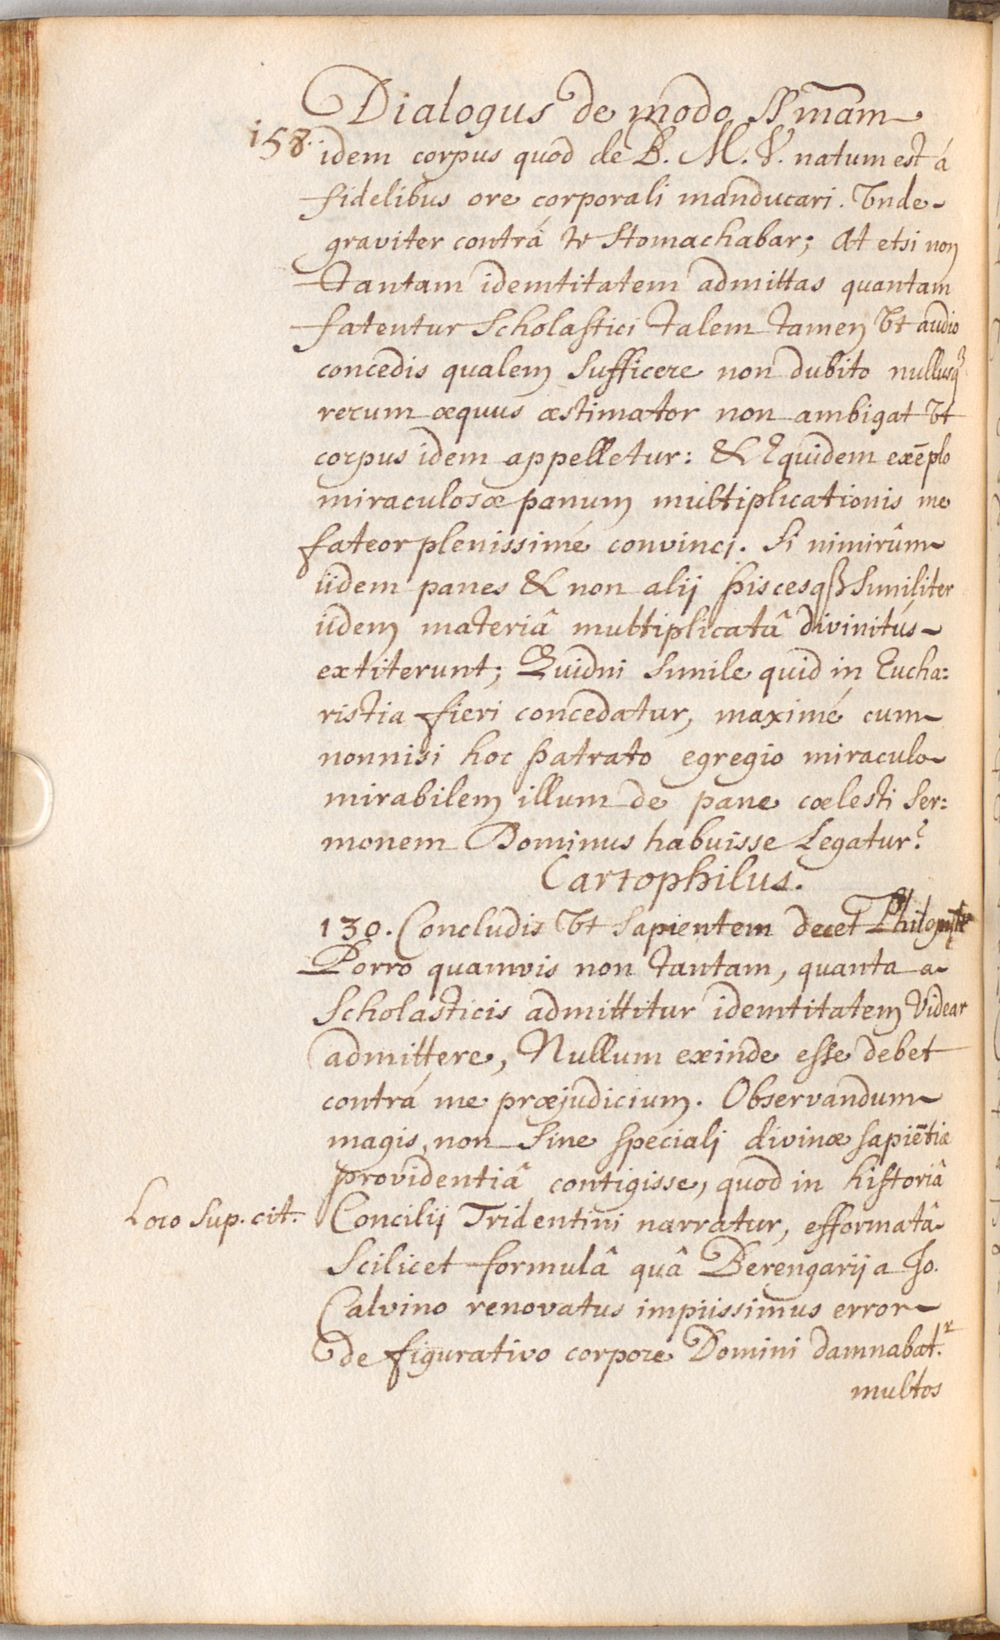 Dialogus de modo SSmam
158. idem corpus quod de B. M. V. natum est á
fidelibus ore corporali manducari. Vnde
graviter contrá te stomachabar; At etsi non
tantam idemtitatem admittas quantam
fatentur Scholastici talem tamen Vt audio
concedis qualem sufficere non dubito nullusq₃
rerum æquus æstimator non ambigat Vt
corpus idem appelletur: & Equidem exēplo
miraculosæ panum multiplicationis me
fateor plenissimé convinci. Si nimirûm
iidem panes & non alij piscesqβ similiter
iidem materiâ multiplicatâ divinitús
extiterunt; Quidni simile quid in Eucha:
ristia fieri concedatur, maximé cum
nonnisi hoc patrato egregio miraculo
mirabilem illum de pane cœlesti ser:
monem Dominus habuisse legatur?
Cartophilus.
130. Concludis Vt sapientem decet
Porro quamvis non tantam, quanta a
Scholasticis admittitur idemtitatem Videar
admittere, Nullum exinde esse debet
contrá me præjudicium. Observandum
magis, non sine speciali divinæ sapiētiæ
providentiâ contigisse, quod in historiâ
Loco sup. cit. Concilij Tridentini narratur, efformatâ
scilicet formulâ quâ Berengarij a Jo.
Calvino renovatus impiissimus error
de figurativo corpore Domini damnabat.ʳ
multos